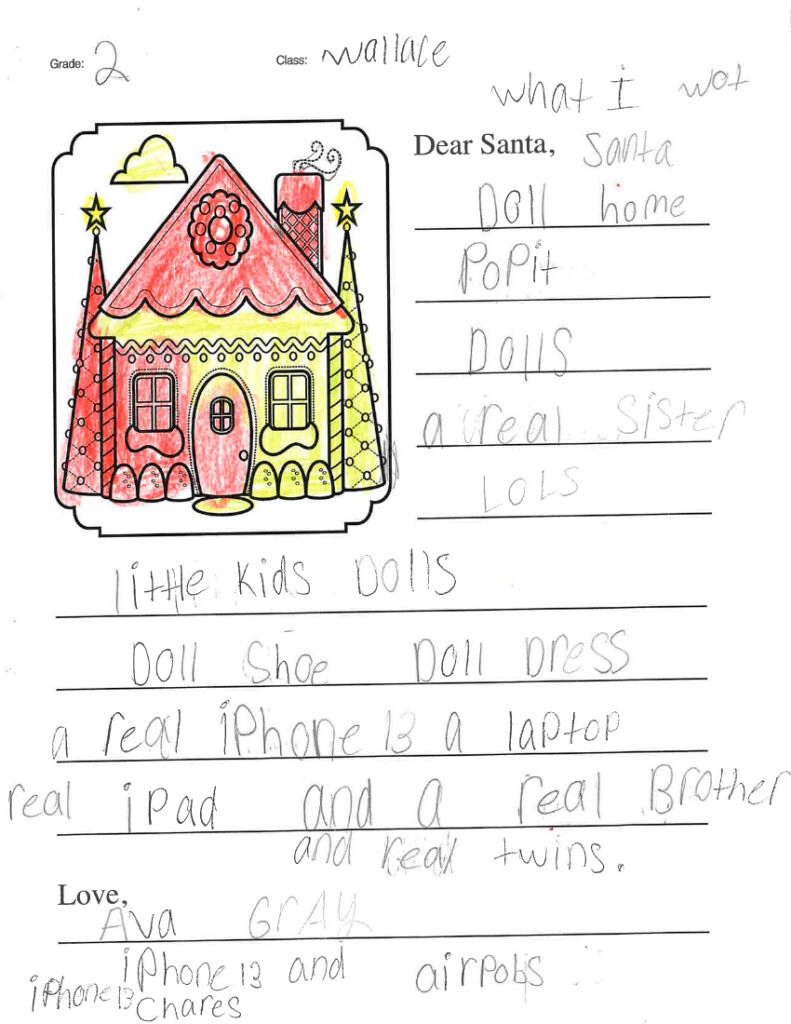 Grade: 2 Class: Wallace
what I wot
Dear Santa, Santa
Doll home
PoPit
Dolls
a real sister
LOLS
little kids Dolls
Doll shoe Doll Dress
a real iPhone 13 a laptop
real iPad and a real Brother
and real twins.
Love,
Ava GrAy
iPhone 13 and airpobs
iPhone 13 Chares